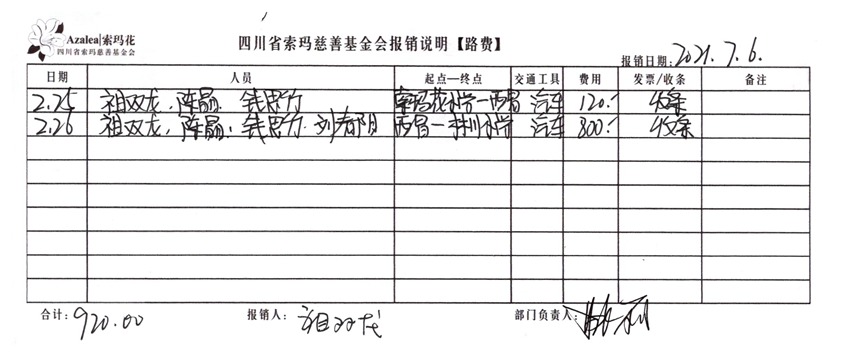 Azalea|索玛花
四川省索玛慈善基金会
四川省索玛慈善基金会报销说明【路费】
报销日期: 2021.7.6.
日期 人员 起点—终点 交通工具 费用 发票/收条 备注
2.25 祖双龙, 陈晶, 钱思竹 索玛花小学—西昌 汽车 120.- 收条
2.26 祖双龙, 陈晶, 钱思竹. 刘春阳 西昌— 小学 汽车 800.- 收条
合计: 920.00 报销人: 祖双龙 部门负责人: